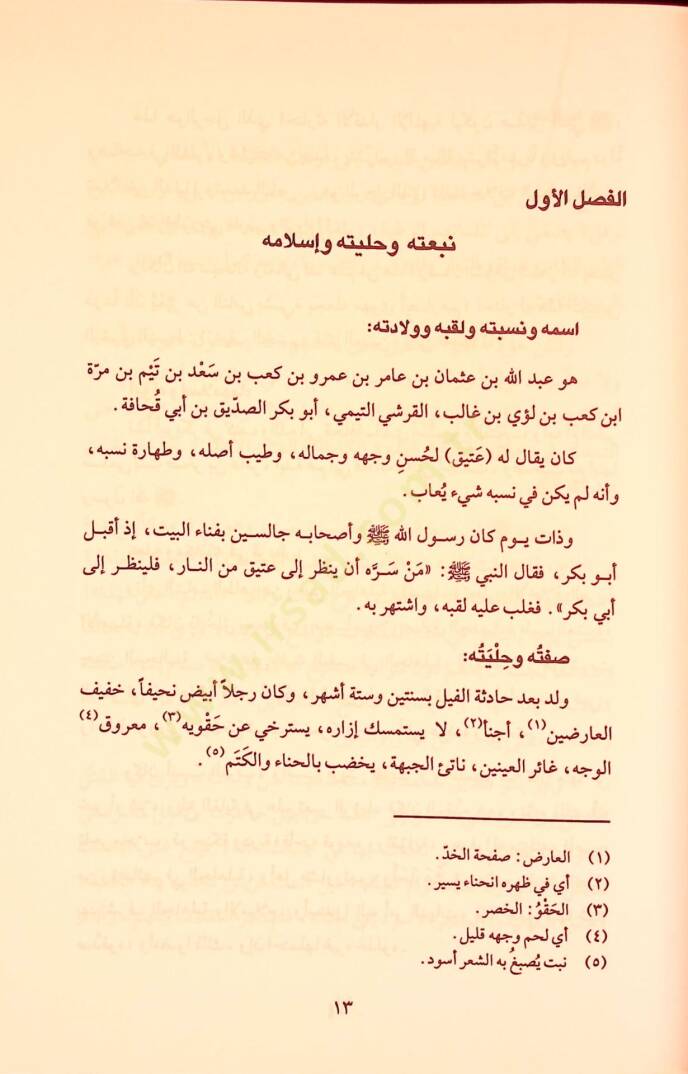 الفصل الأول
نبعته وحليته وإسلامه
اسمه ونسبته ولقبه وولادته:
هو عبد الله بن عثمان بن عامر بن عمرو بن كعب بن سَعْد بن تَيْم بن مرّة
ابن كعب بن لؤي بن غالب، القرشي التيمي، أبو بكر الصدّيق بن أبي قُحافة.
كان يقال له (عَتيق) لحُسنِ وجهه وجماله، وطيب أصله، وطهارة نسبه،
وأنه لم يكن في نسبه شيء يُعاب.
وذات يوم كان رسول الله ﷺ وأصحابه جالسين بفناء البيت، إذ أقبل
أبو بكر، فقال النبي ﷺ: «مَنْ سَرَّه أن ينظر إلى عتيق من النار، فلينظر إلى
أبي بكر». فغلب عليه لقبه، واشتهر به.
صفتُه وحِلْيَتُه:
ولد بعد حادثة الفيل بسنتين وستة أشهر، وكان رجلاً أبيض نحيفاً، خفيف
العارضين(١)، أجنأ(٢)، لا يستمسك إزاره، يسترخي عن حَقْويه(٣)، معروق(٤)
الوجه، غائر العينين، ناتئ الجبهة، يخضب بالحناء والكَتَم(٥).
(١) العارض: صفحة الخدّ.
(٢) أي في ظهره انحناء يسير.
(٣) الحَقْوُ: الخصر.
(٤) أي لحم وجهه قليل.
(٥) نبت يُصبغُ به الشعر أسود.
١٣